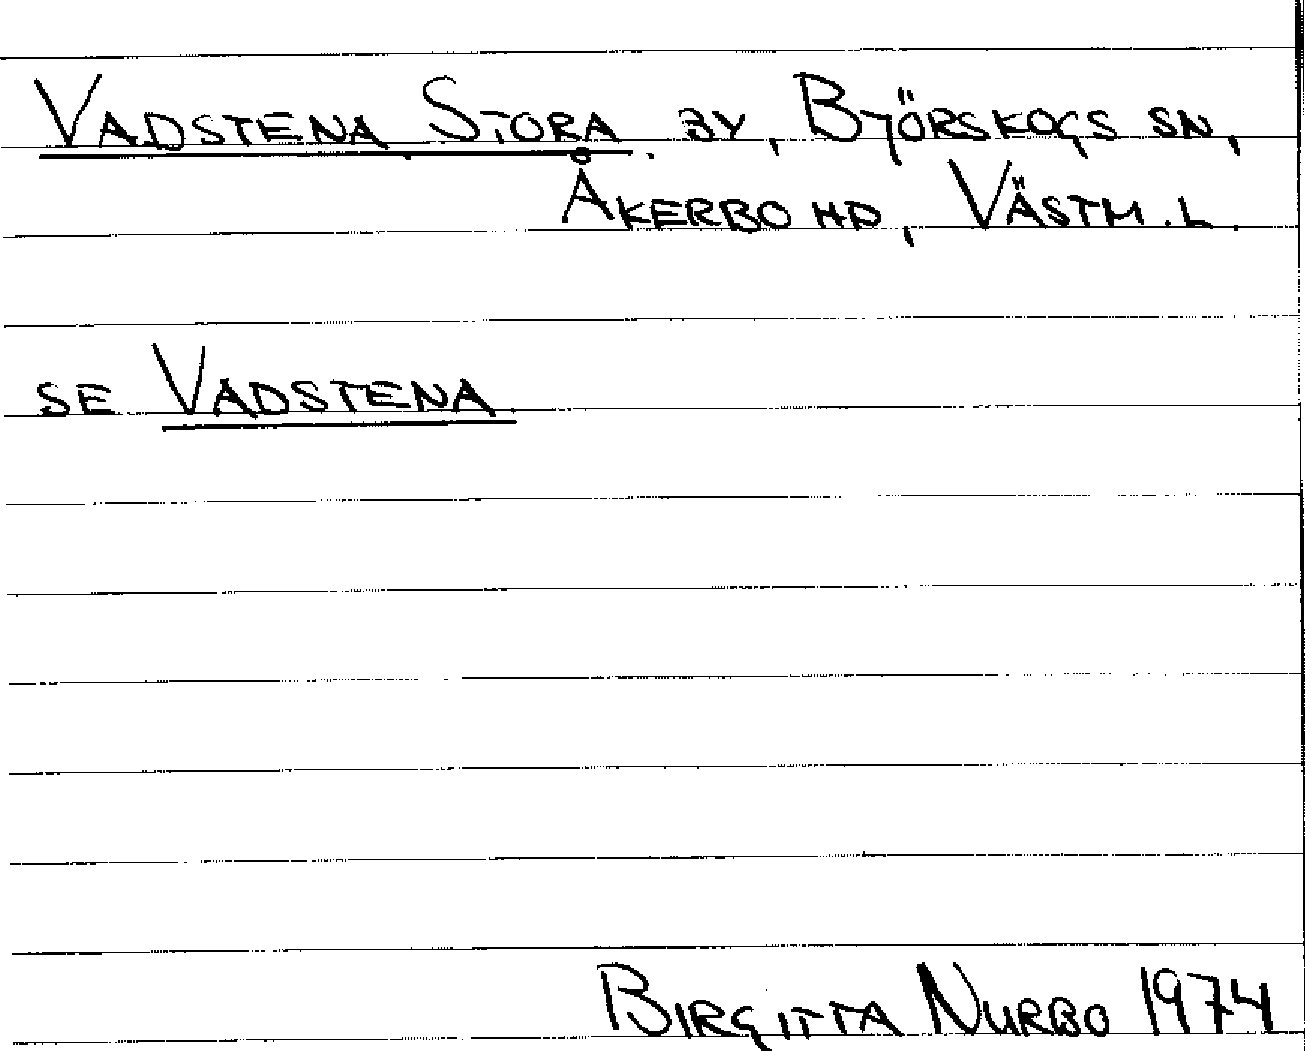 VADSTENA STORA BY, BJÖRSKOGS SN,
ÅKERBO HD, VÄSTM. L.
SE VADSTENA
BIRGITTA NURBO 1974